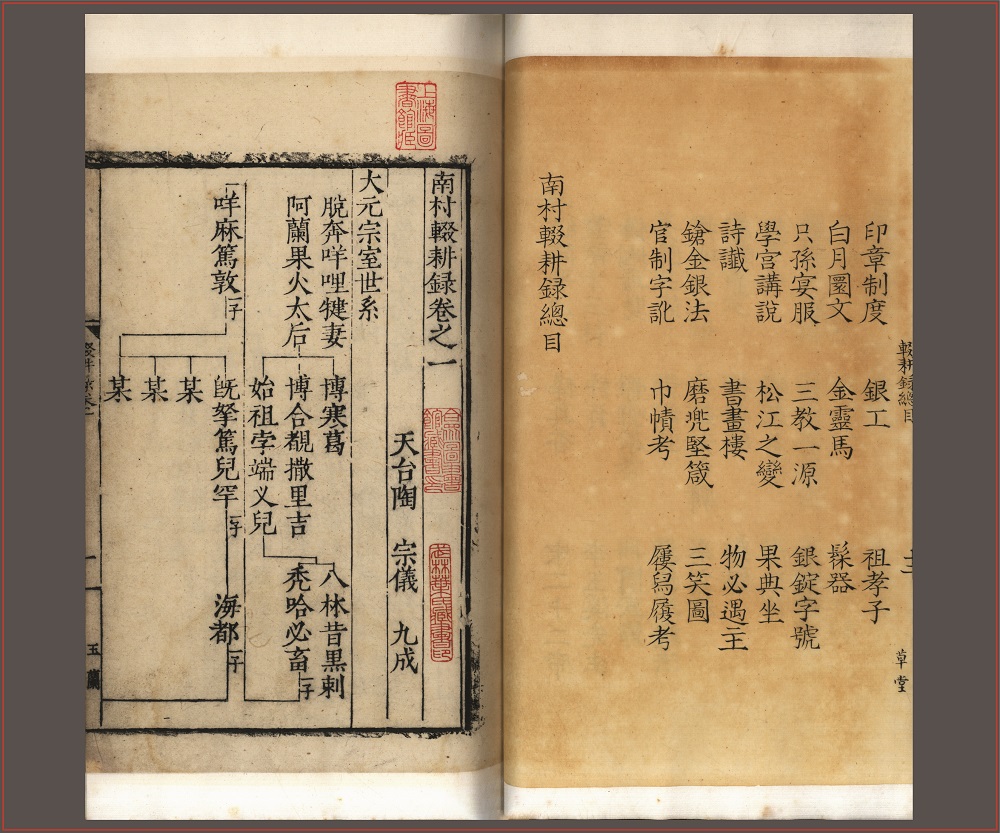 輟耕録總目 草堂
印章制度 銀工 祖孝子
白月圞文 金靈馬 髹器
只孫宴服 三教一源 銀錠字號
學宮講說 松江之變 果典坐
詩讖 書畫樓 物必遇主
鎗金銀法 磨兠堅箴 三笑圖
官制字訛 巾幘考 屨舄履考
南村輟耕録總目
上海圖書館藏
南村輟耕録卷之一
合眾圖書館藏書印
武林葉氏藏書印
天台陶 宗儀 九成
大元宗室世系
脫奔咩哩犍妻 博寒葛 八林昔黒剌
阿蘭果火太后 博合覩撒里吉 禿哈必畜 一子
始祖孛端义兒
咩麻篤敦 一子 既拏篤兒罕 一子 海都 一子
某
某
某
玉蘭